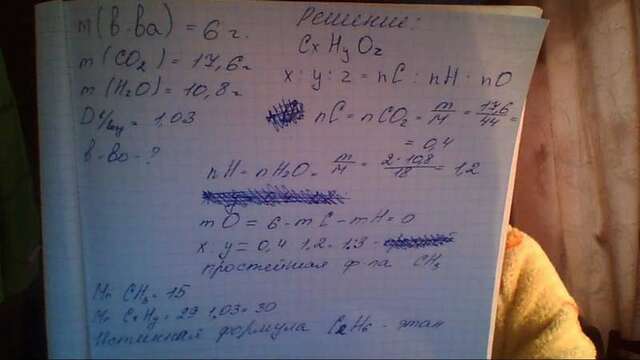 m (в-ва) = 6 г.
m (CO2) = 17,6 г
m (H2O) = 10,8 г
D = 1,03
в-во - ?
Решение:
CxHyOz
x : y : z = nC : nH : nO
nC = nCO2 = m/M = 17,6/44 =
= 0,4
nH = nH2O = m/M = 2·10,8/18 = 1,2
mO = 6 - mC - mH = 0
x : y = 0,4 1,2 = 1:3
простейшая ф-ла CH3
Mr CH3 = 15
Mr CxHy = 29 1,03 = 30
Истинная формула C2H6 - этан